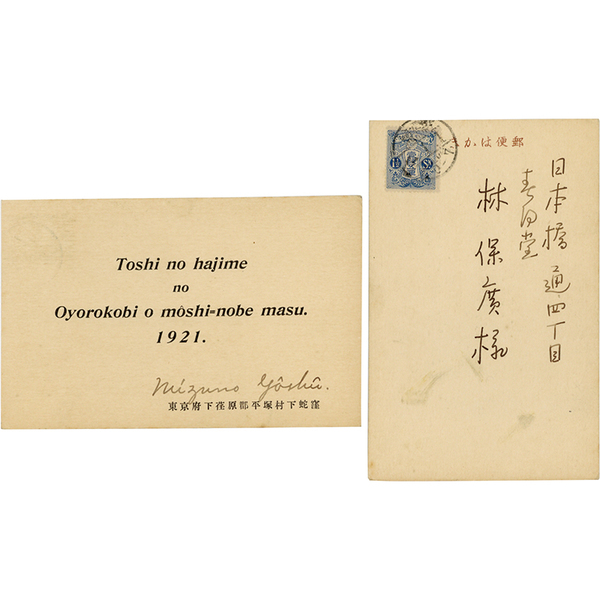 Toshi no hajime
no
Oyorokobi o môshi=nobe masu.
1921.
Mizuno Yôshû.
東京府下荏原郡平塚村下蛇窪
郵便はか
日本橋通四丁目
春陽堂
林保廣様